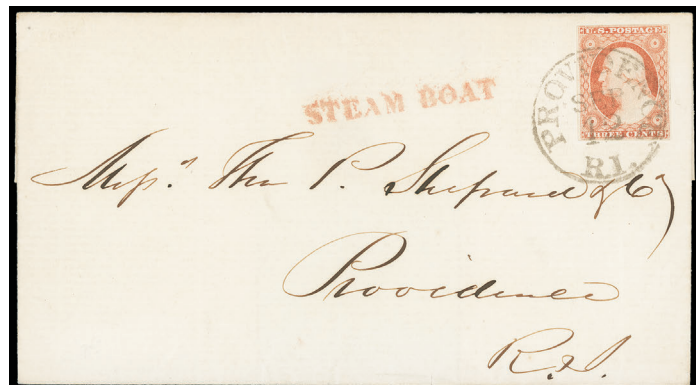 U.S. POSTAGE
THREE CENTS
PROVIDENCE
SEP
R.I.
STEAM BOAT
Messrs. Tho P. Shepard & Co
Providence
R.I.